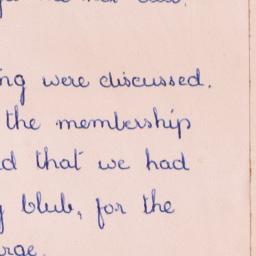 ing were discussed.
the membership
d that we had
y blub, for the
arge.